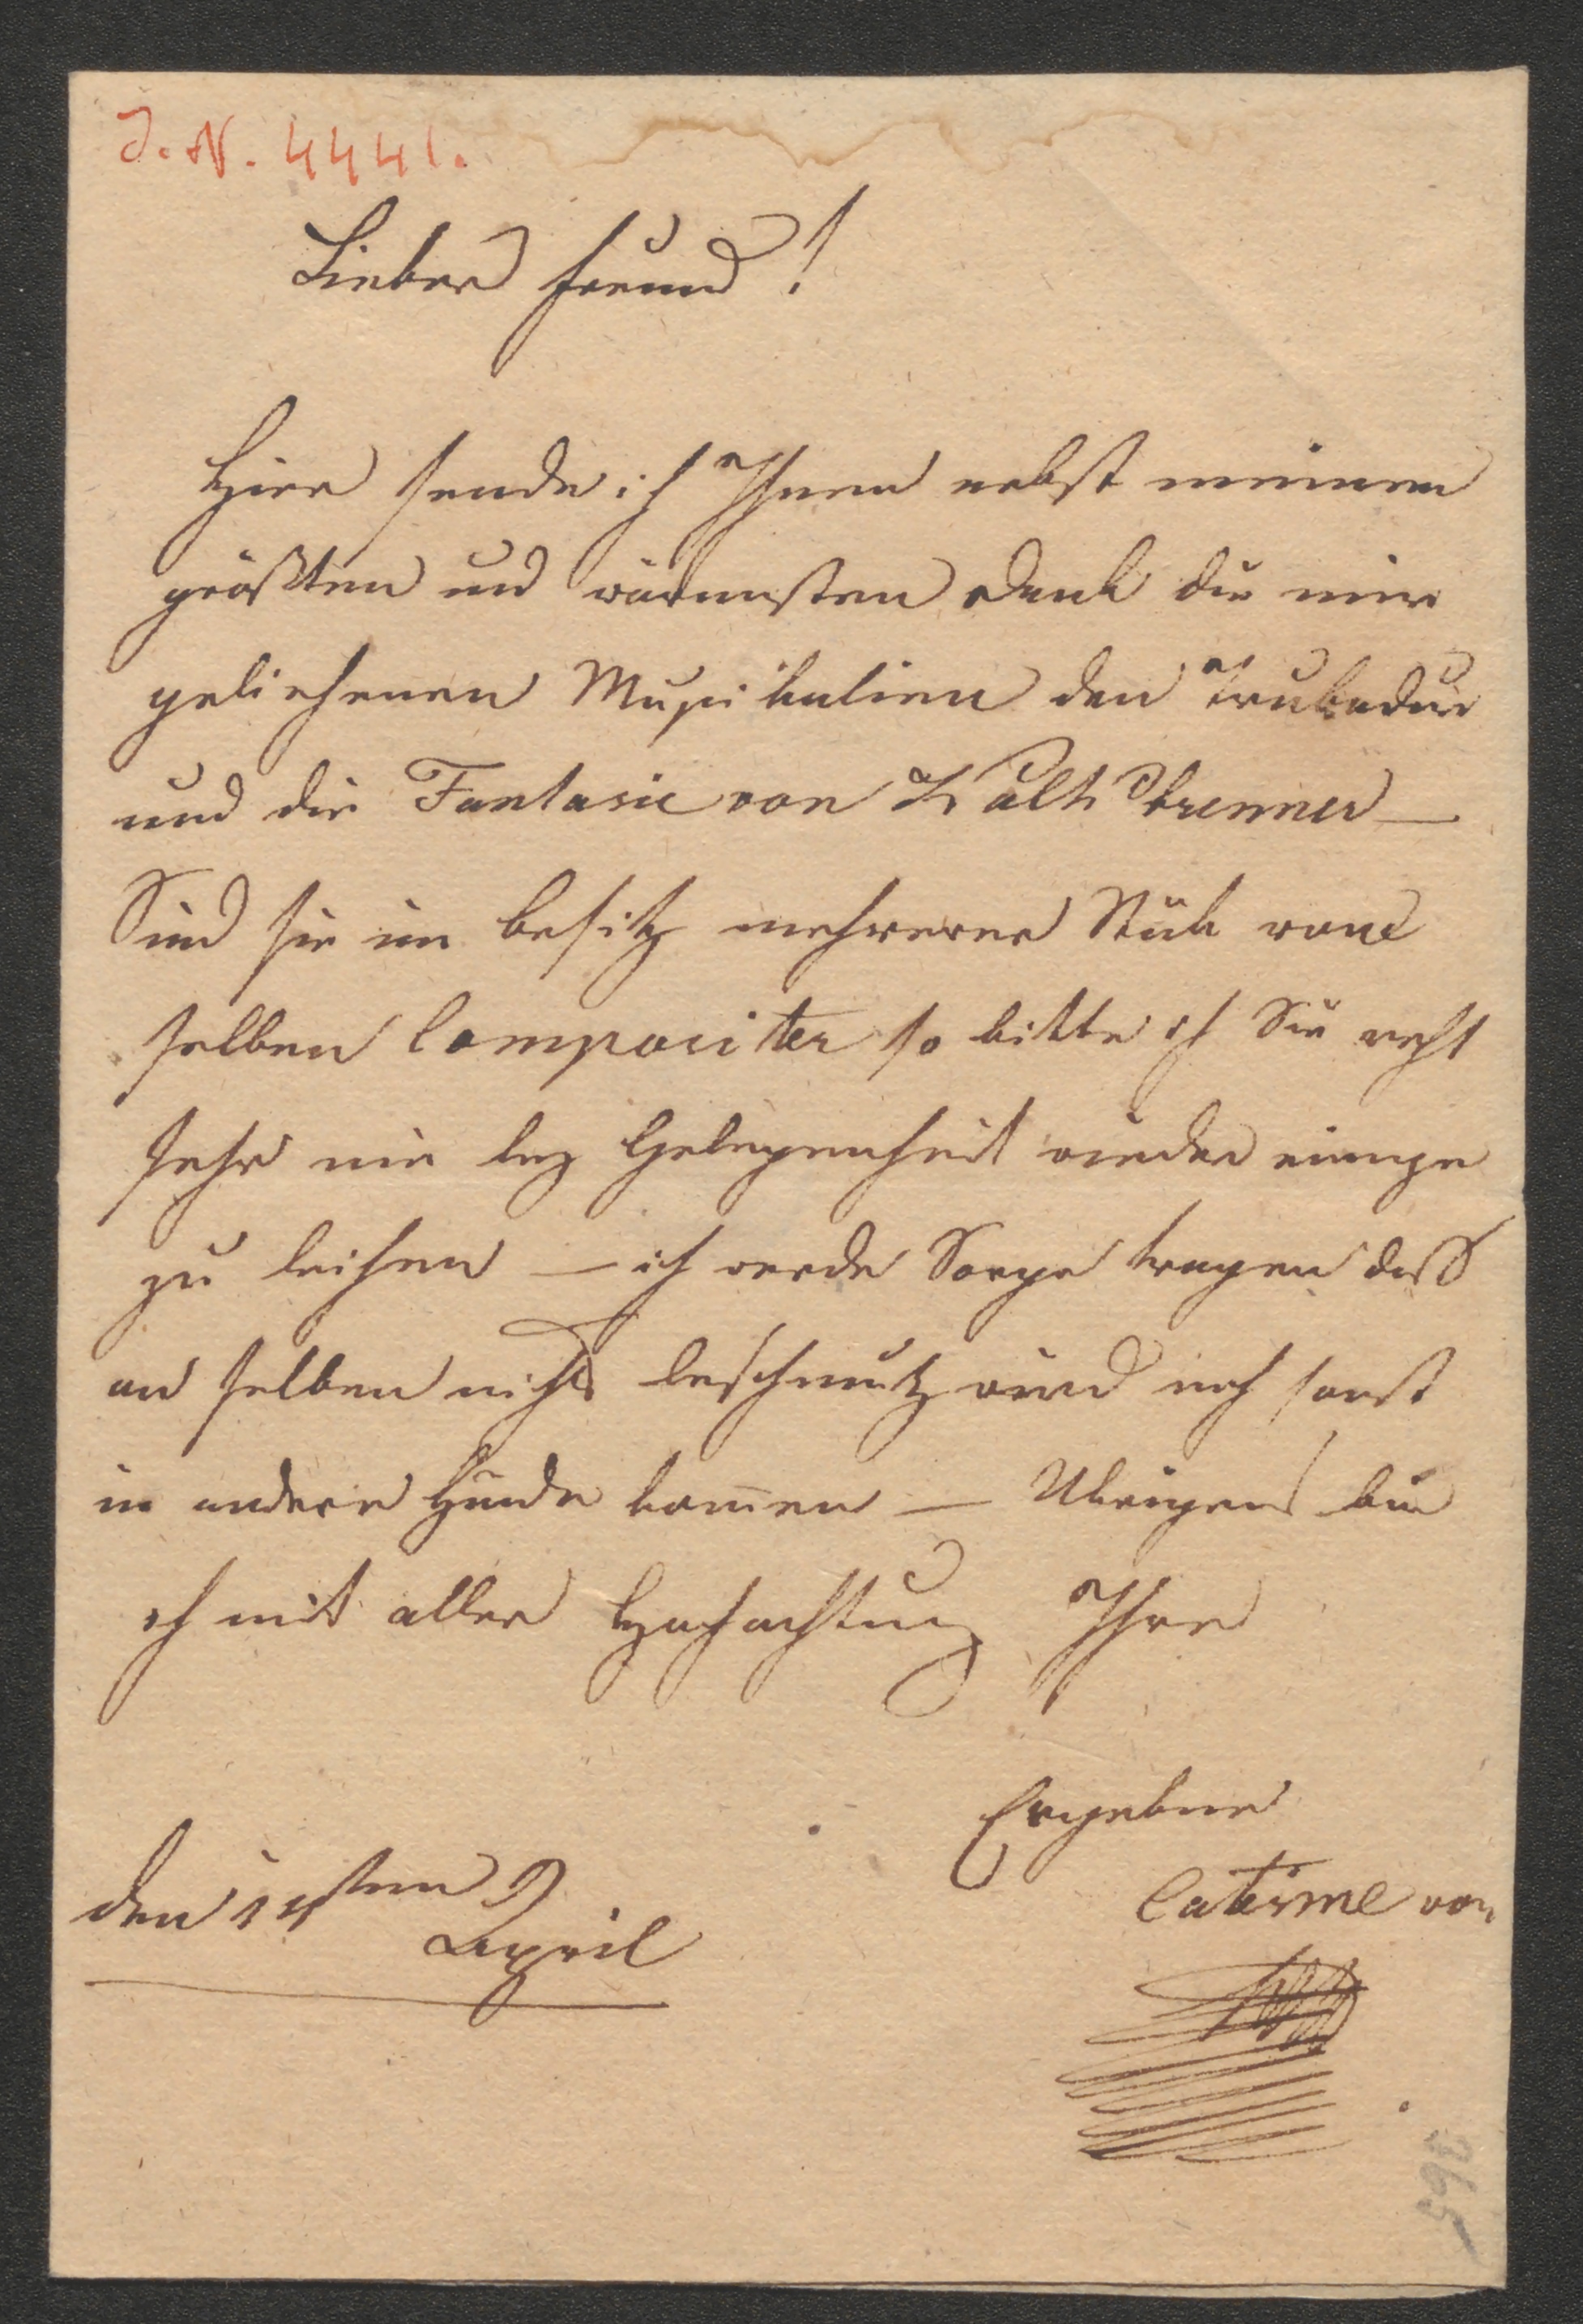 J. N. 4441.
Lieber Freund!
Hier sende ich Ihnen nebst meinem
größten und wärmsten Dank die mir
geliehenen Musikalien den Trubadur
und die Fantasie von Kalkbrenner —
Sind sie im besitz mehrerer Stük von
selben Compositer so bitte ich Sie recht
sehr mir bey Gelegenheit wieder einige
zu leihen — ich werde Sorge tragen daß
an selben nichts beschmutz wird noch sonst
in andere Hände kom̄en — Ubrigens bin
ich mit aller Hochachtung Ihre
Ergebne
Catirme von
den 14ten
April
593